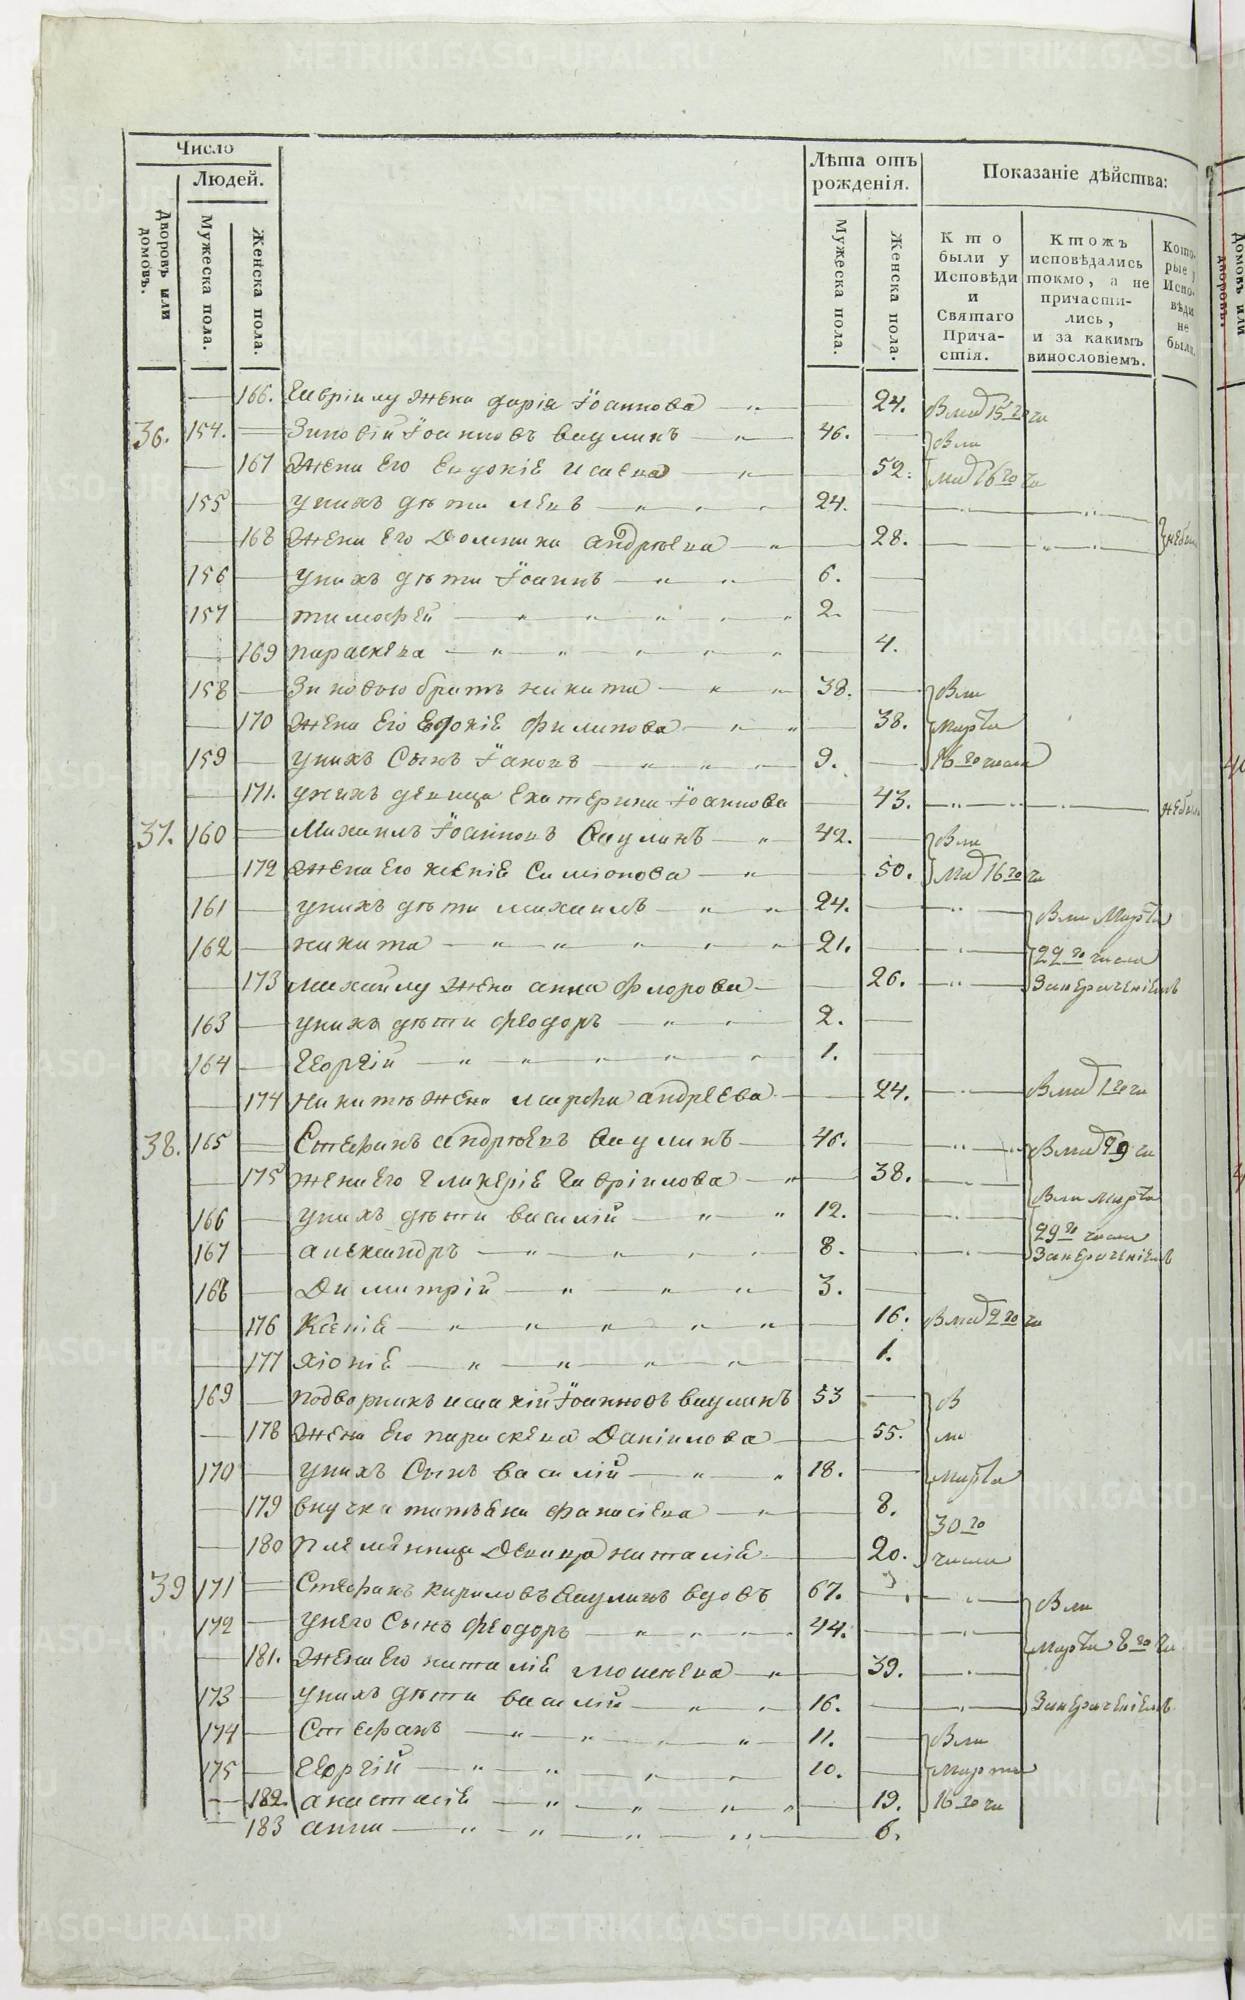 Число
Людей.
Дворовъ или домовъ.
Мужеска пола.
Женска пола.
Лѣта отъ рожденія.
Мужеска пола.
Женска пола.
Показаніе дѣйства:
Кто были у Исповѣди и Святаго Причастія.
Ктожъ исповѣдались токмо, а не причастились, и за какимъ винословіемъ.
Которые у Исповѣди не были.
166. Гавріилу жена дарія Іоаннова 24. В ма 15 го чи
36. 154. Зиновій Іоанновъ Ваулинъ 46. В ма
167 Жена Его Евдокіѣ Исаева 52. ма 16 го чи
155 у нихъ дѣти Левъ 24.
168 Жена Его Домника андрѣева 28. небыли
156 у нихъ дѣти Іоаннъ 6.
157 тимофей 2.
169 параскева 4.
158 Зиновью братъ никита 38. В ма
170 Жена Его Евдокіѣ филипова 38. Марта
159 у нихъ Сынъ Іаковъ 9. 16 го числа
171. у нихъ девица Екатерина Іоаннова 43. небыла
37. 160 Михаилъ Іоанновъ Ваулинъ 42. В ма
172 Жена Его ксеніѣ Симіонова 50. Ма 16 го чи
161 у нихъ дѣти михаилъ 24. В ма Марта
162 никита 21. 22 го числа
173 михаилу Жена анна флорова 26. Занерачениемъ
163 у нихъ дѣти феодоръ 2.
164 Георгій 1.
174 Никитѣ Жена марфа андреева 24. В ма 1 го чи
38. 165 Стефанъ андрѣевъ Ваулинъ 46. В ма 29 чи
175 жена Его Гликеріѣ Гавріилова 38. В ма марта
166 у нихъ дѣти василій 12. 29 го числа
167 александръ 8. Занерачениемъ
168 Димитрій 3.
176 Ксеніѣ 16. В ма 2 го чи
177 хіоніѣ 1.
169 подворникъ исакій Іоанновъ ваулинъ 53 В
178 Жена Его параскева Даніилова 55. ма
170 у нихъ Сынъ василій 18. марта
179 внучка татьяна фанасіева 8. 30 го
180 племянница Девица наталіѣ 20. числа
39 171 Стефанъ кириловъ Ваулинъ вдовъ 67. В ма
172 у него Сынъ феодоръ 44. марта 8 го чи
181. Жена Его наталіѣ моисеева 39.
173 у нихъ дѣти василій 16. Занерачениемъ
174 Стефанъ 11. В ма
175 Георгій 10. Марта
182. анастасіѣ 19. 16 го чи
183 анна 6.